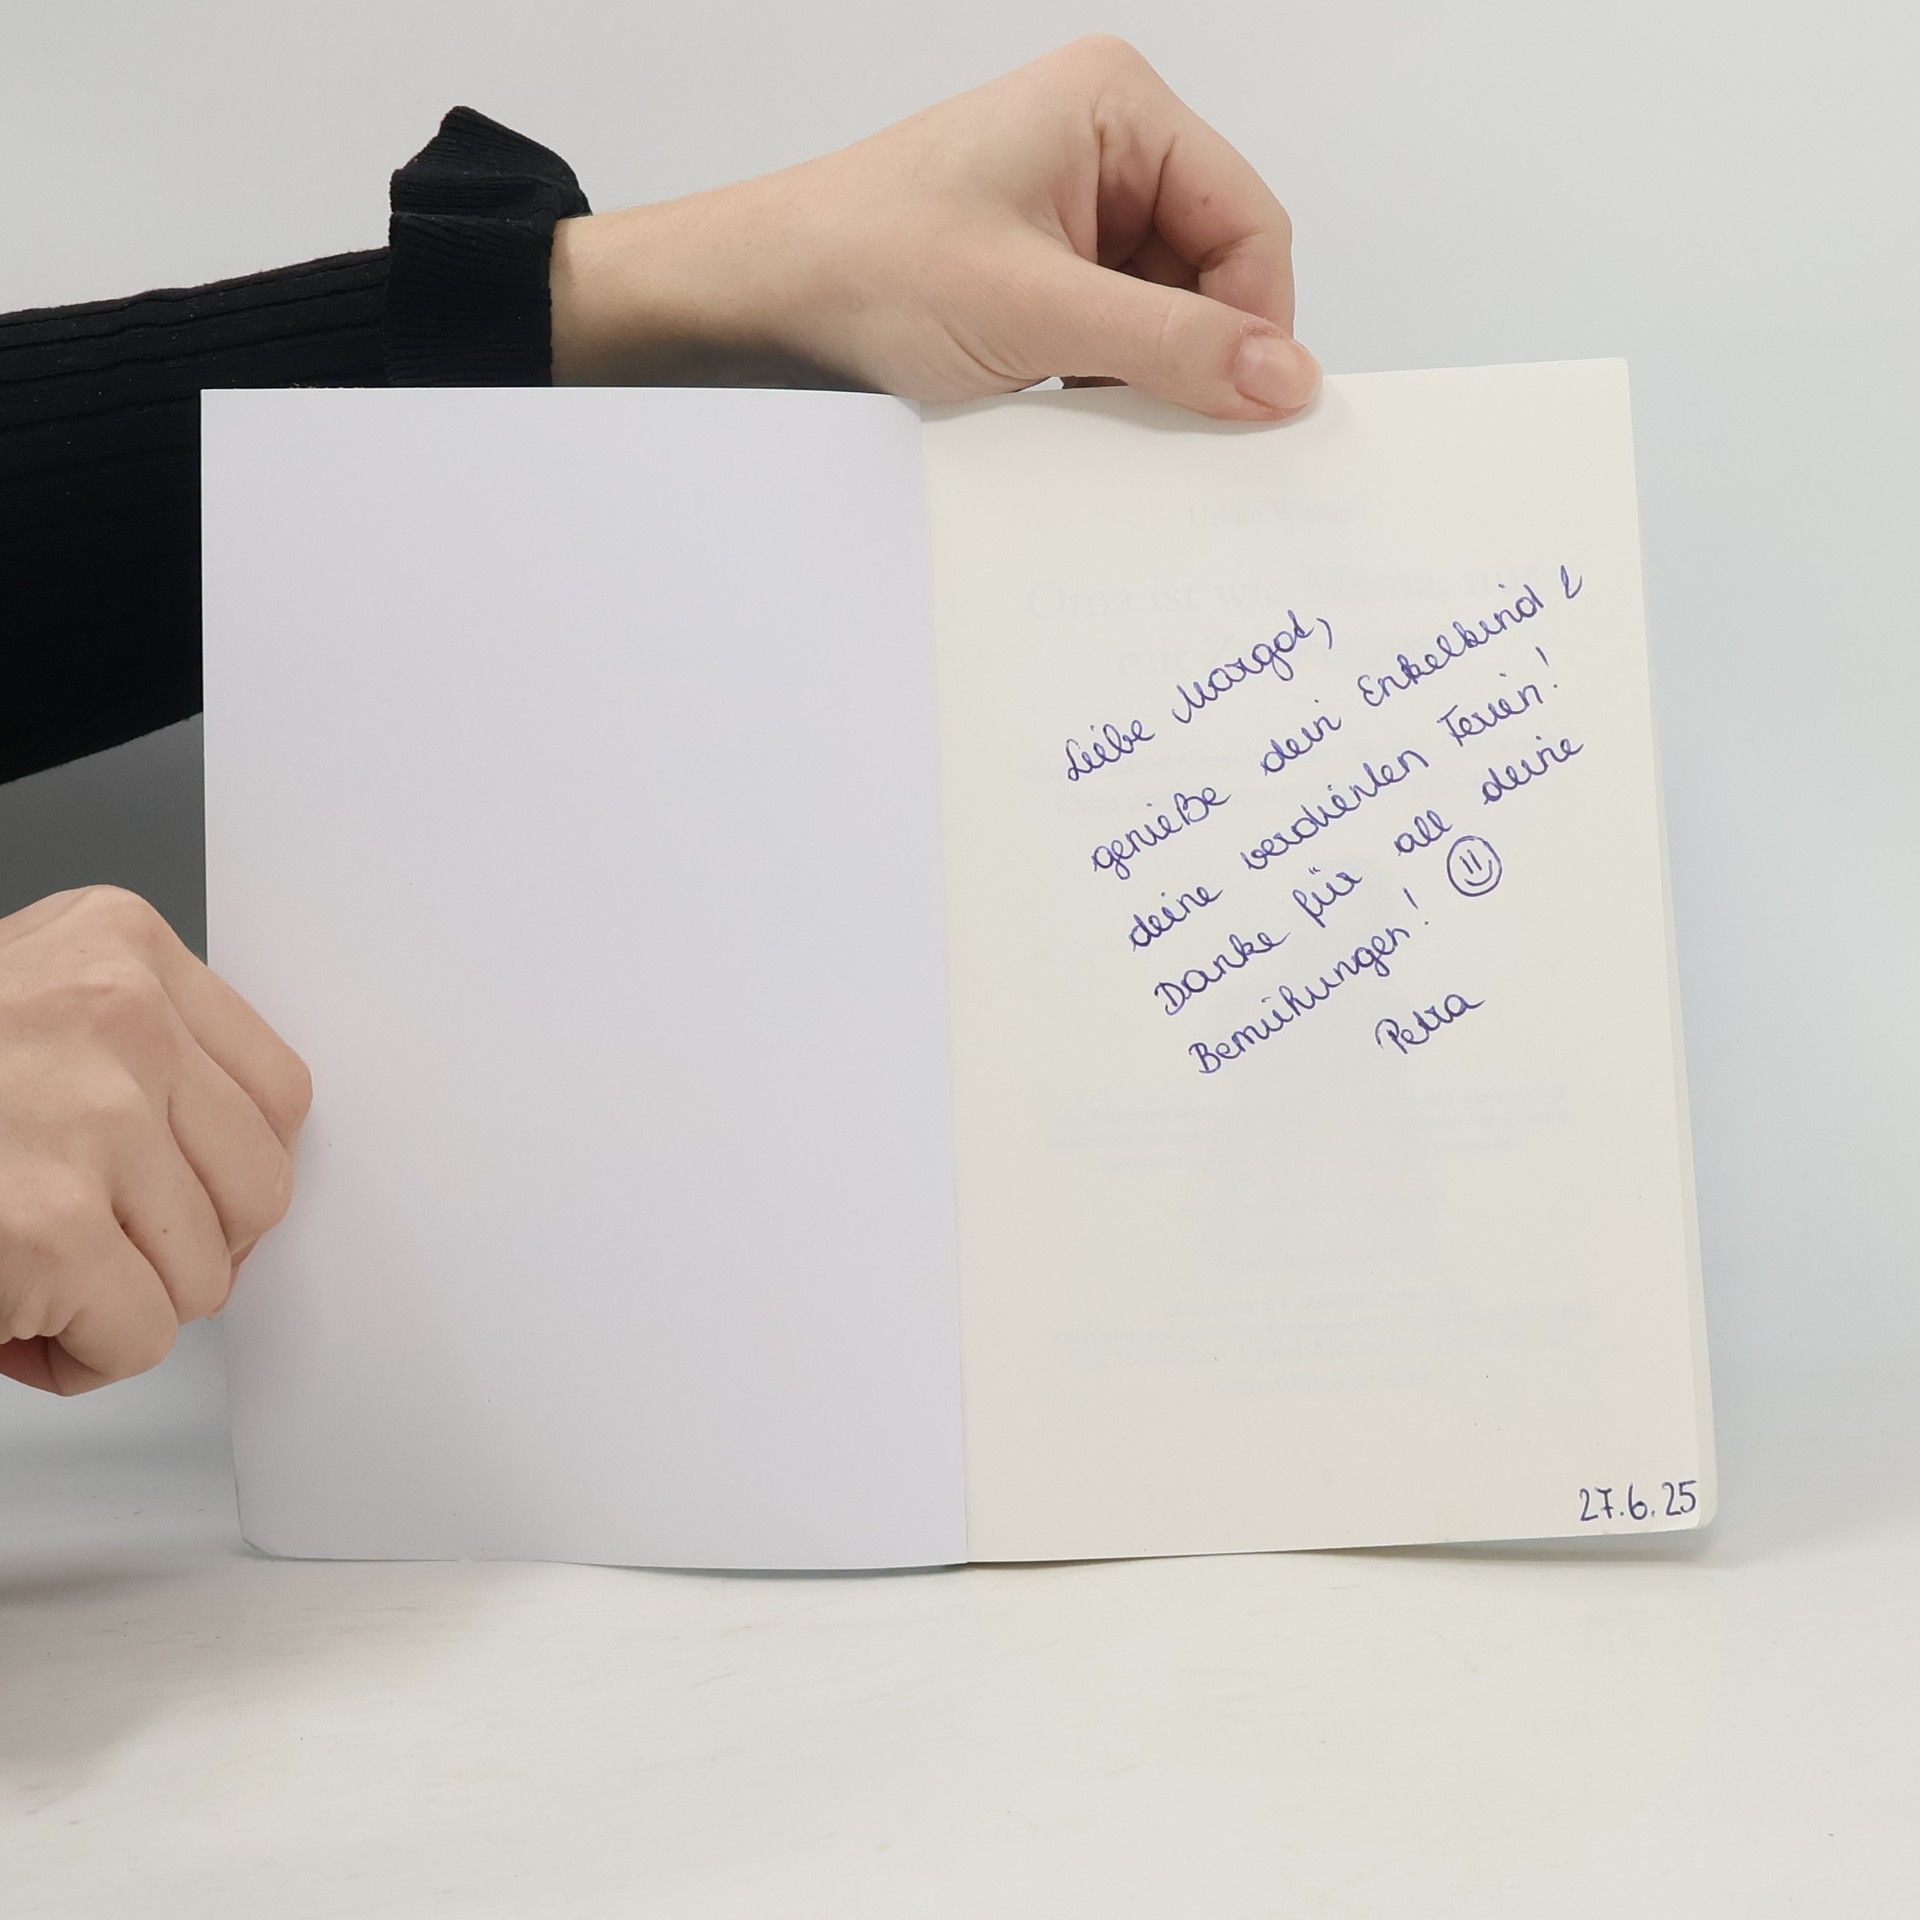 Liebe Margot,
genieße dein Enkelkind &
deine verdienten Ferien!
Danke für all deine
Bemühungen! ☺
Petra
27.6.25
Oma ist wie Mama, nur
mit